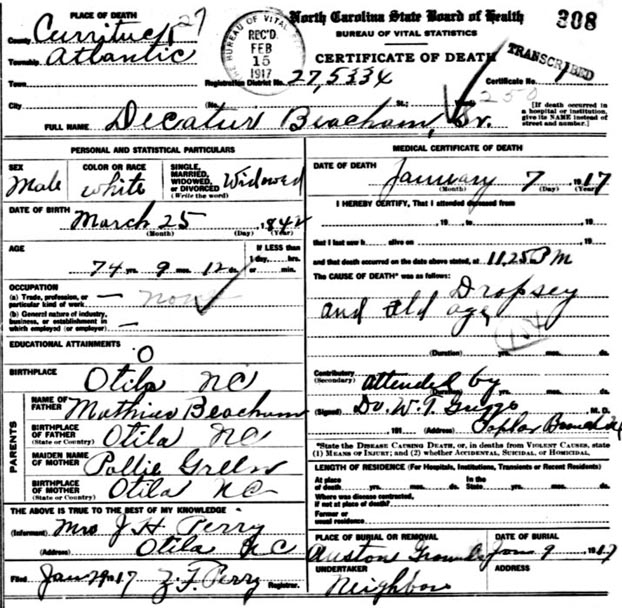 PLACE OF DEATH
County Currituck 27
Township Atlantic
Town
City
THE BUREAU OF VITAL
REC'D.
FEB
15
1917
North Carolina State Board of Health
308
BUREAU OF VITAL STATISTICS
CERTIFICATE OF DEATH
TRANSCRIBED
Registration District No. 27,5334
Certificate No.
250
(No. St.; Ward)
[If death occurred in a hospital or institution, give its NAME instead of street and number.]
FULL NAME Decatur Beacham, Sr.
PERSONAL AND STATISTICAL PARTICULARS
SEX
Male
COLOR OR RACE
white
SINGLE, MARRIED, WIDOWED, OR DIVORCED
(Write the word)
Widowed
DATE OF BIRTH
March 25 1842
(Month) (Day) (Year)
AGE
74 yrs. 9 mos. 12 ds.
If LESS than 1 day, hrs. or min.
OCCUPATION
(a) Trade, profession, or particular kind of work —
(b) General nature of industry, business, or establishment in which employed (or employer) —
none
EDUCATIONAL ATTAINMENTS 0
BIRTHPLACE
Otila NC
PARENTS
NAME OF FATHER Mathias Beacham
BIRTHPLACE OF FATHER (State or Country) Otila NC
MAIDEN NAME OF MOTHER Pollie Green
BIRTHPLACE OF MOTHER (State or Country) Otila NC
THE ABOVE IS TRUE TO THE BEST OF MY KNOWLEDGE
(Informant) Mrs J H Perry
(Address) Otila N C
Filed Jan 29 1917 Z. F. Perry Registrar.
MEDICAL CERTIFICATE OF DEATH
DATE OF DEATH
January 7 1917
(Month) (Day) (Year)
I HEREBY CERTIFY, That I attended deceased from
, 19 to , 19
that I last saw h alive on , 19
and that death occurred on the date above stated, at 11.25 P M
The CAUSE OF DEATH* was as follows:
Dropsey
and old age
(Duration) yrs. mos. ds.
Contributory (Secondary) attended by
(Duration) yrs. mos. ds.
(Signed) Dr. W. T. Griggs M. D.
191 (Address) Poplar Branch NC
*State the DISEASE CAUSING DEATH, or, in deaths from VIOLENT CAUSES, state (1) MEANS OF INJURY; and (2) whether ACCIDENTAL, SUICIDAL, or HOMICIDAL.
LENGTH OF RESIDENCE (For Hospitals, Institutions, Transients or Recent Residents)
At place of death yrs. mos. ds. In the State yrs. mos. ds.
Where was disease contracted, if not at place of death?
Former or usual residence
PLACE OF BURIAL OR REMOVAL
Austons Grounds
DATE OF BURIAL
Jan 9 1917
UNDERTAKER
Neighbors
ADDRESS